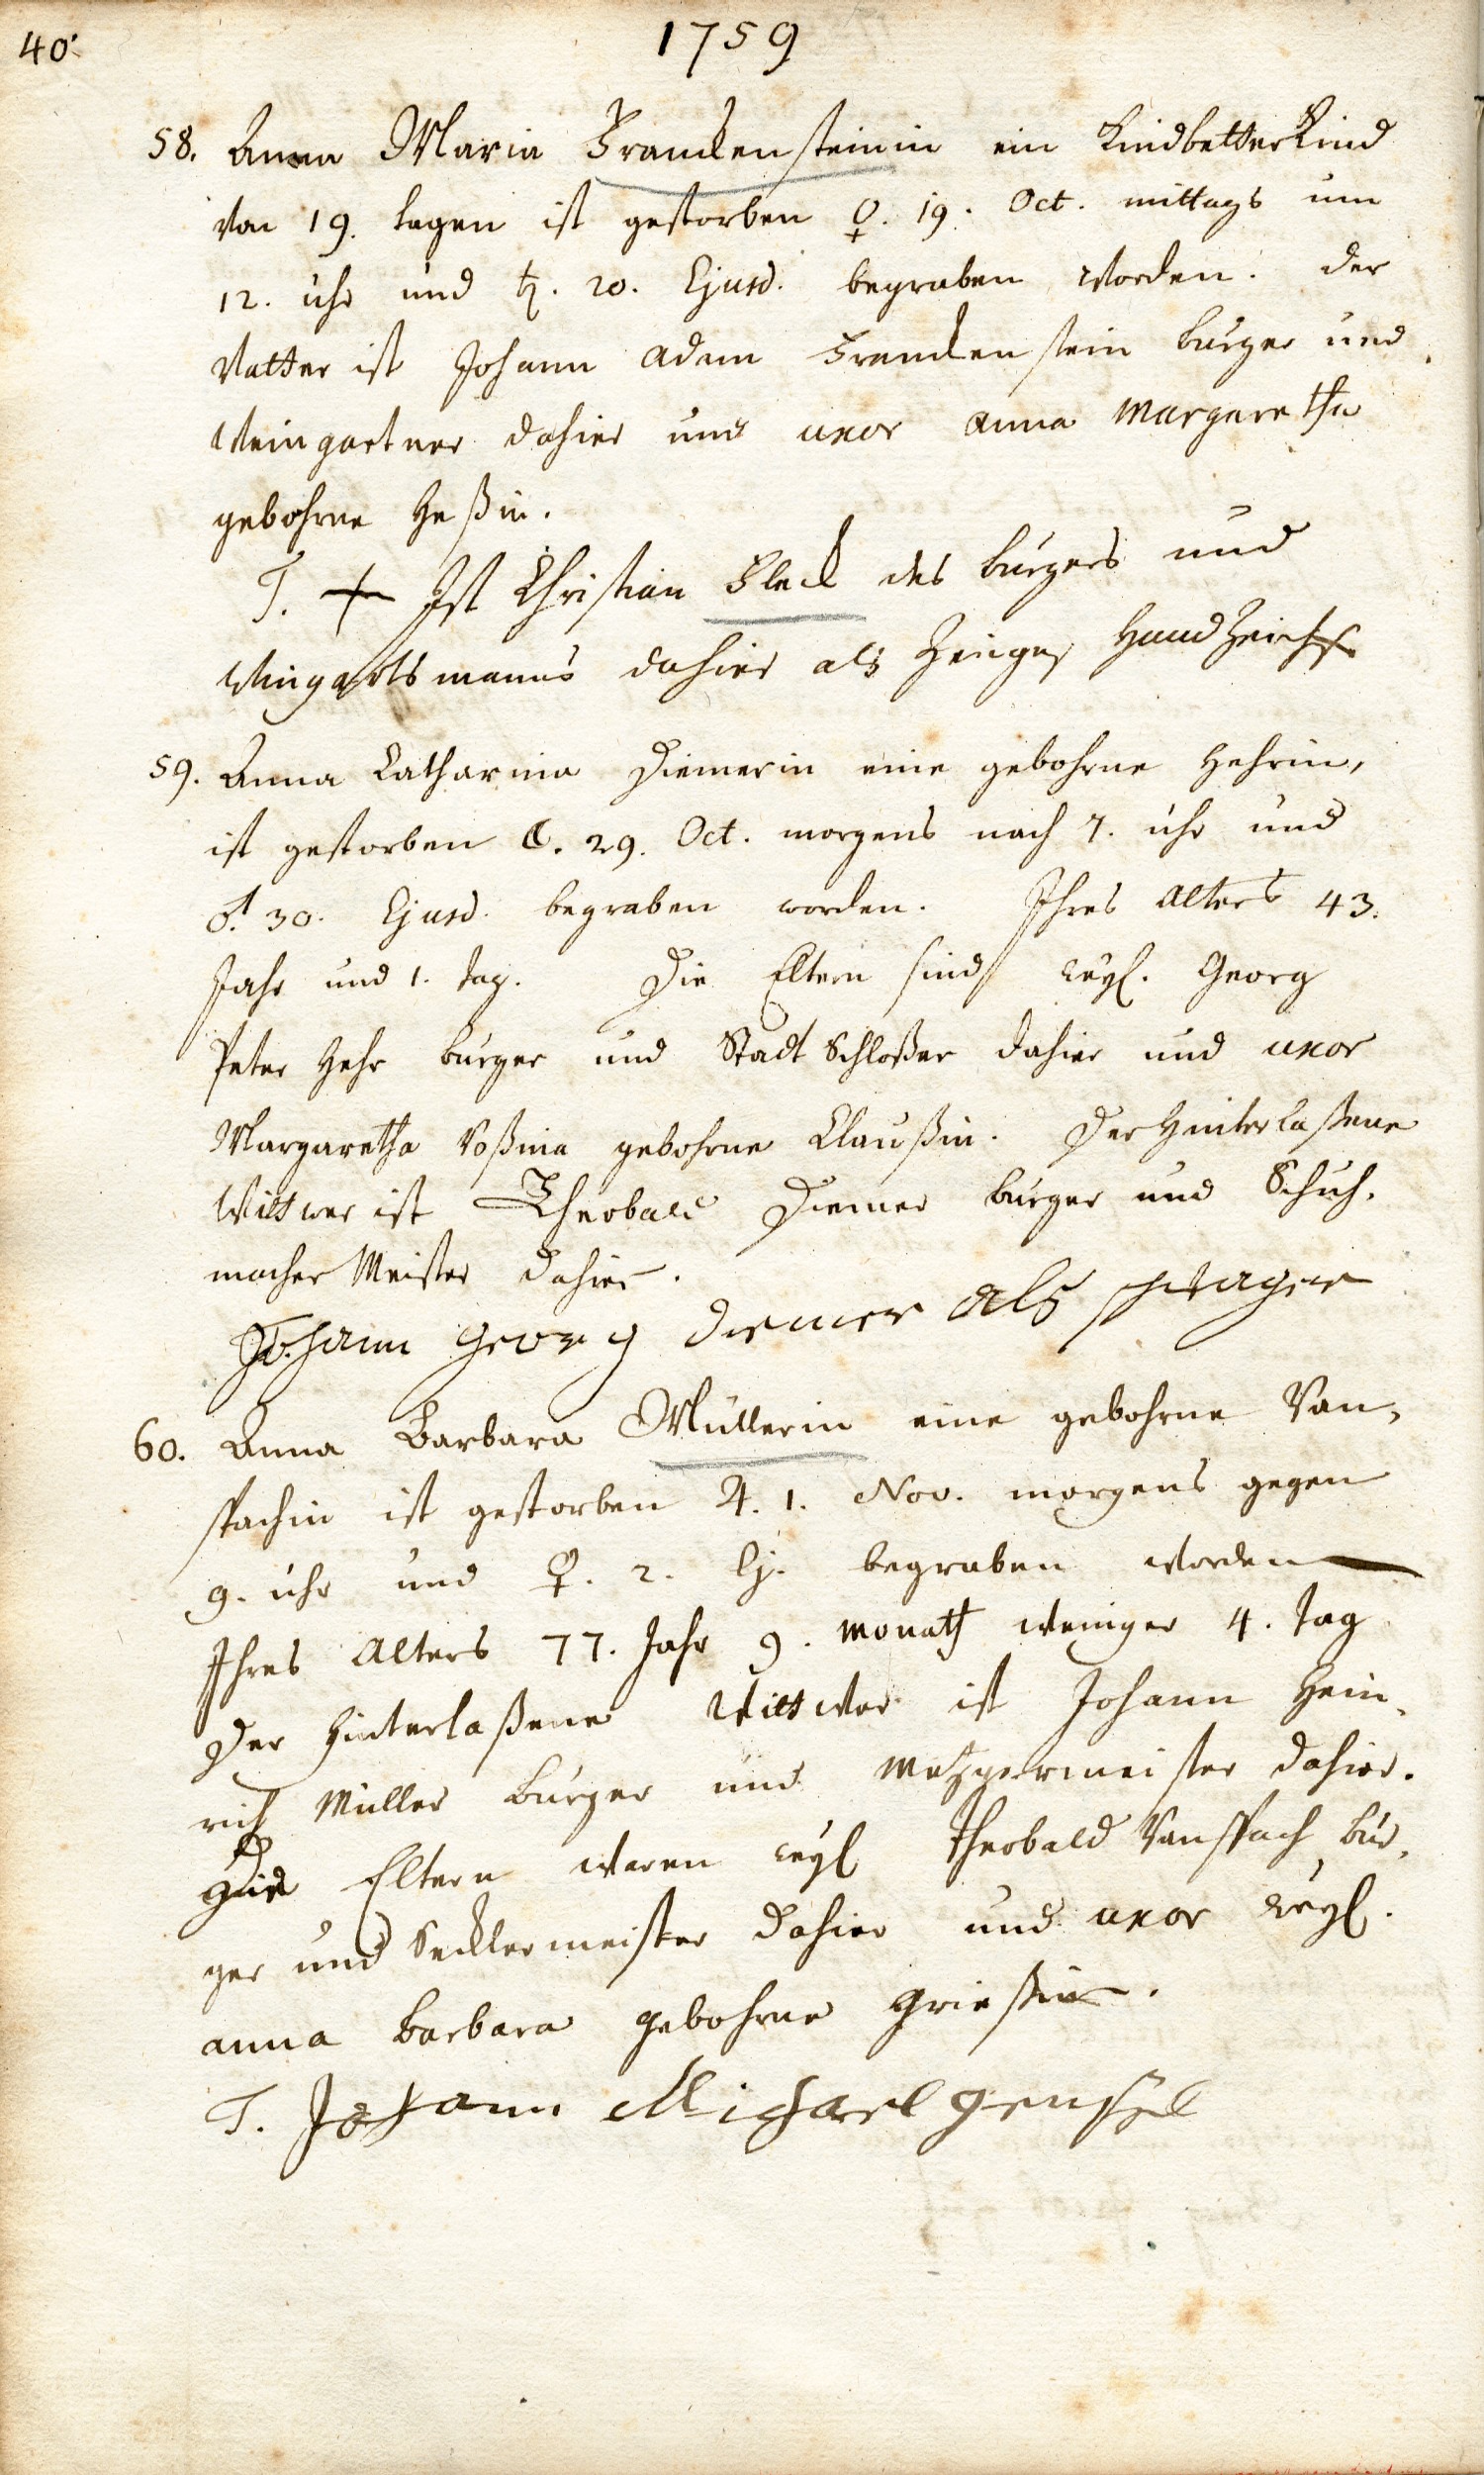 40.
1759
58. Anna Maria Franckensteinin ein Kindbetter Kind
von 19. tagen ist gestorben ♀. 19. Oct. mittags um
12. uhr und ♄. 20. Ejusd. begraben worden. der
Vatter ist Johann Adam Franckenstein burger und
Weingartner dahier und uxor Anna Margaretha
gebohrne Heßin.
T. + Ist Christian Fleck des burgers und
Wingertsmanns dahier als Zeugen Handzeichen
59. Anna Catharina Diemerin eine gebohrne Hehrin,
ist gestorben ☾. 29. Oct. morgens nach 7. uhr und
♂. 30. Ejusd. begraben worden. Ihres Alters 43.
Jahr und 1. tag. Die Eltern sind weyl. Georg
Peter Hehr burger und Stadt Schloßer dahier und uxor
Margaretha Rosina gebohrne Claußin. Der Hinterlaßene
Wittwer ist Theobald Diemer burger und Schuh-
macher Meister dahier.
Johann Georg Diemer als schwager
60. Anna Barbara Müllerin eine gebohrne Van-
spachin ist gestorben ♃. 1. Nov. morgens gegen
9. uhr und ♀. 2. Ej. begraben worden
Ihres Alters 77. Jahr 9. monath weniger 4. tag
Der Hinterlaßene Wittwer ist Johann Hein-
rich Müller burger und Metzgermeister dahier.
Die Eltern waren weyl Theobald Vanspach bur-
ger und Secklermeister dahier und uxor weyl.
anna barbara gebohrne Grießin.
T. Johann Michael